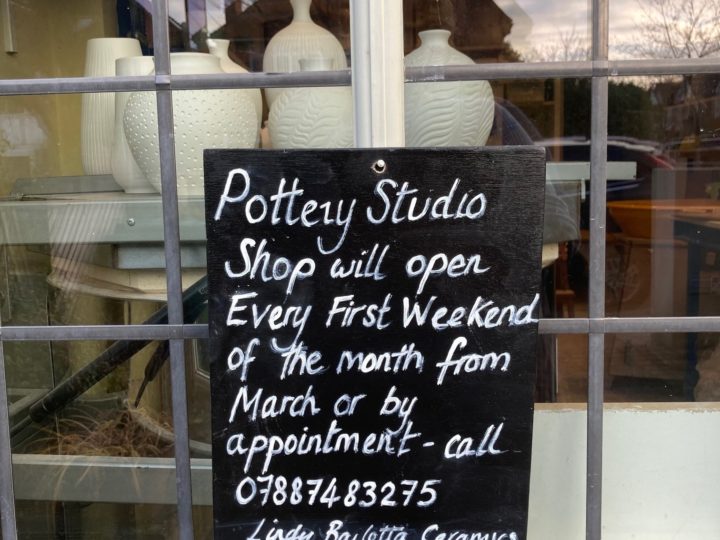 Pottery Studio
Shop will open
Every First Weekend
of the month from
March or by
appointment - call
07887483275
Lindy Barletta Ceramics